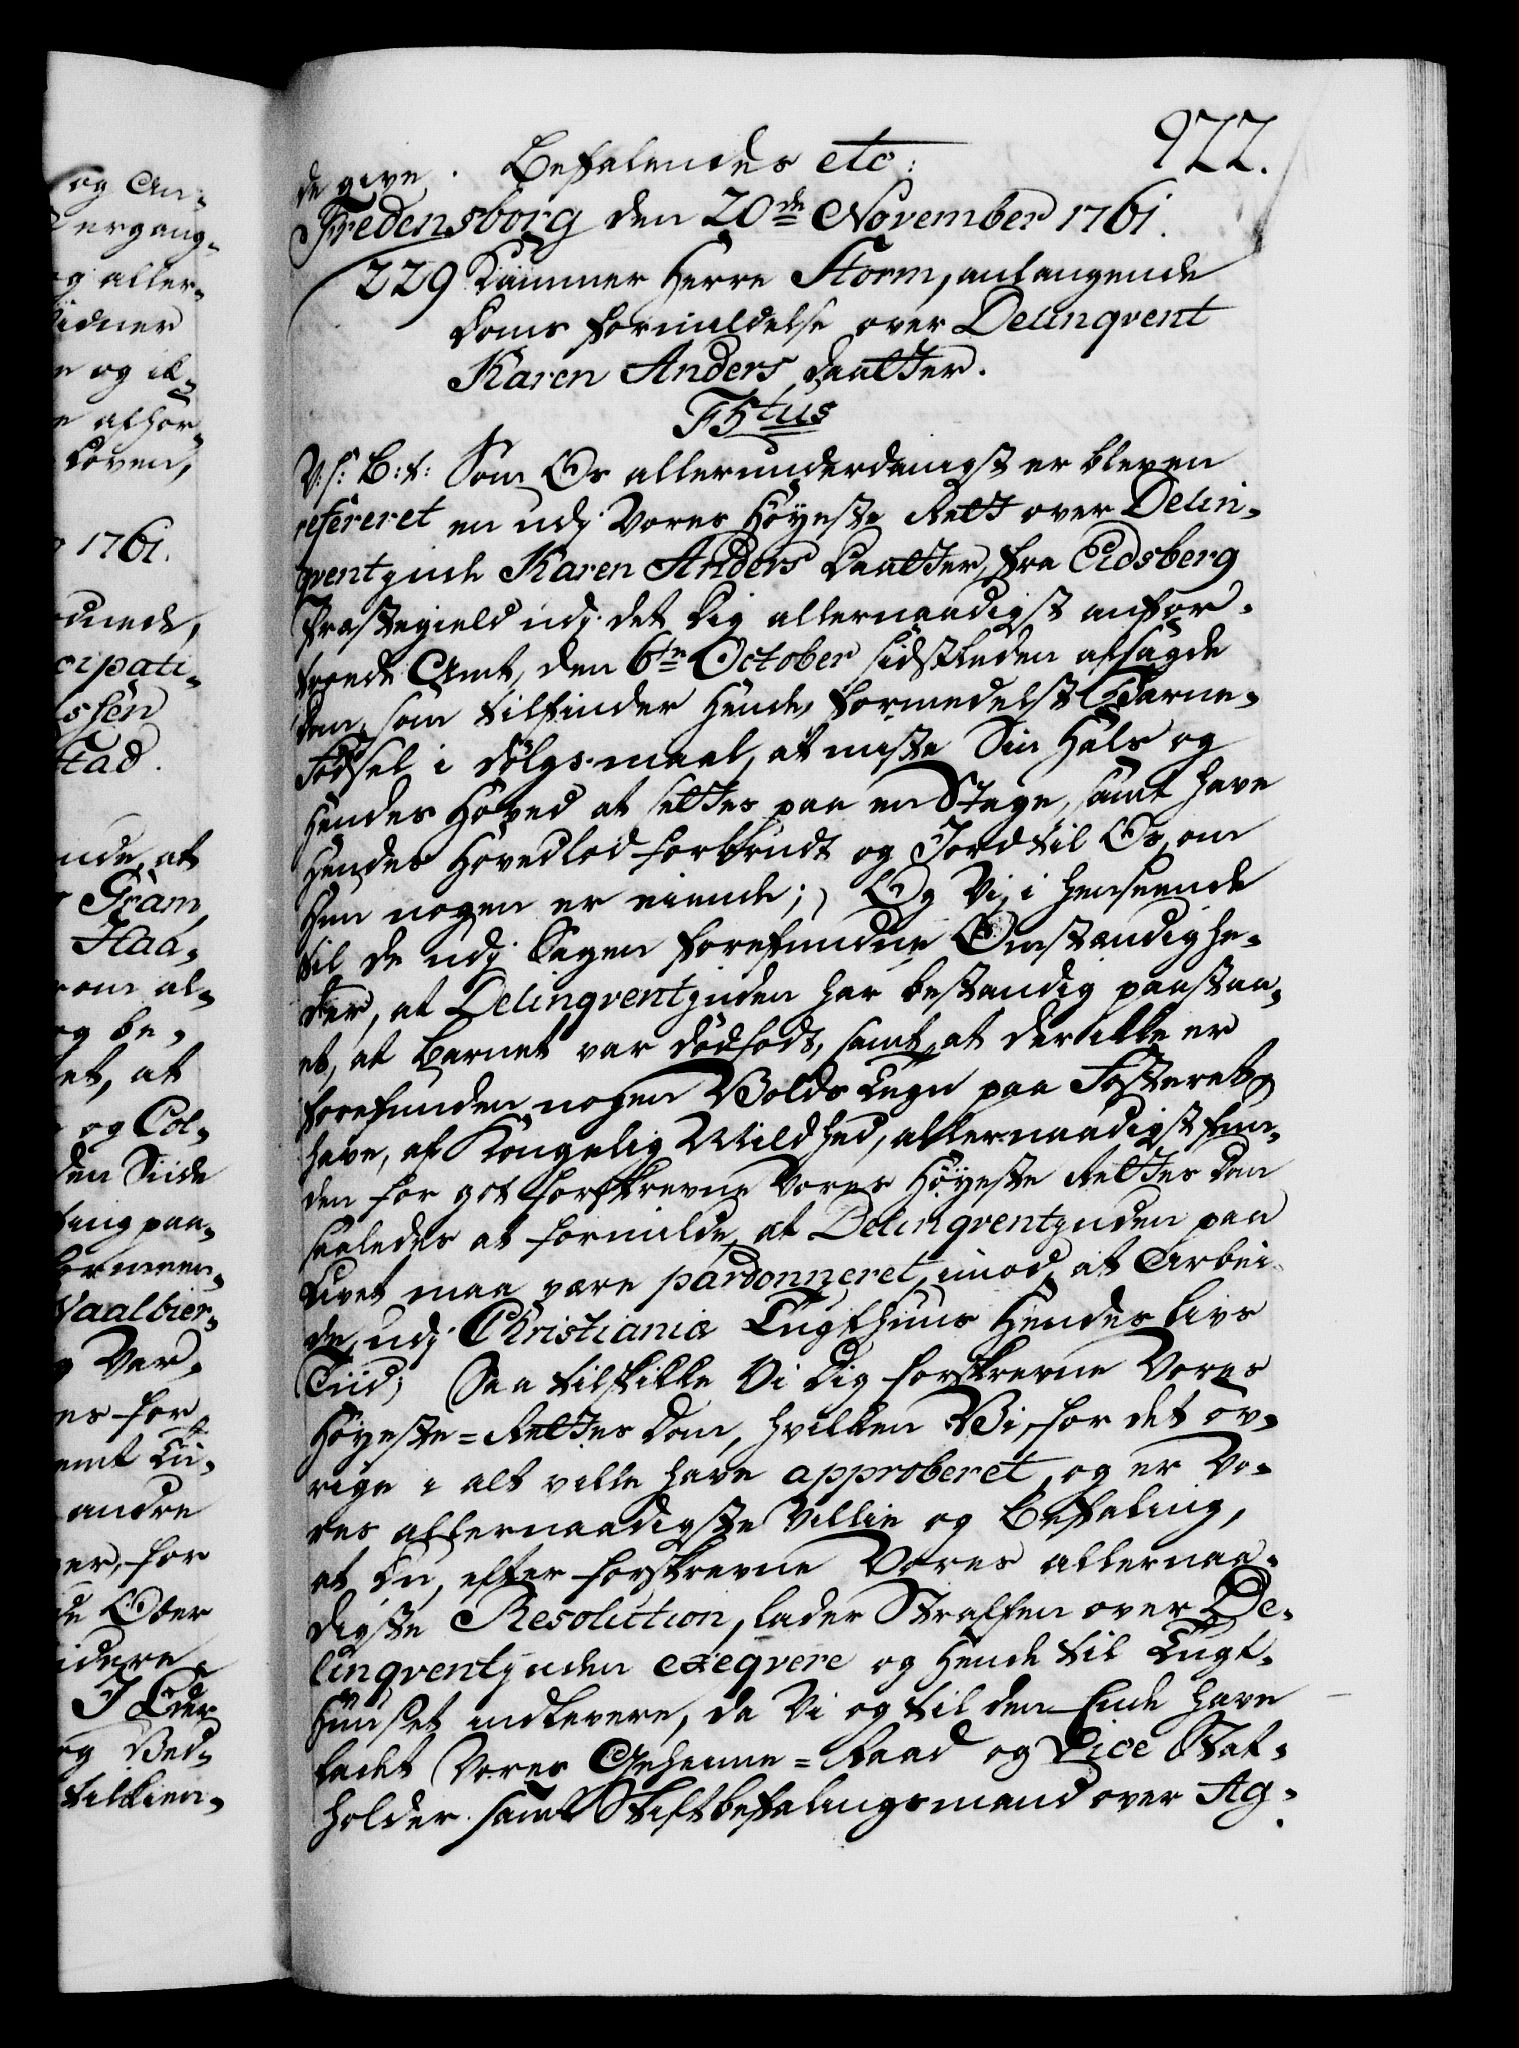 922.
de give. Befalendes etc:
Fredensborg den 20de November 1761.
229 Kammer Herre Storm, anlangende
Doms formildelse over Delinqvent
Karen Anders Daatter.
F5tus
V: S: B: t: Som Os allerunderdanigst er bleven
refereret en udj Vores Høyeste Rett over Delin-
qventjnde Karen Anders Daatter, fra Eidsberg
Præstegield udj det Dig allernaadigst anfor-
troede Amt, den 6te October sidstleden afsagde
Dom, som tilfinder Hende, formedelst Barne-
Fødsel i dølgsmaal, at miste Sin Hals og
Hendes Hoved at settes paa en Stage, samt have
Hendes Hovedlod forbrudt og Jord til Os, om
Hun nogen er eiende; Og Vi, i henseende
til de udj Sagen forefundne Omstændighe-
der, at Delinqventjnden har bestandig paastaa-
et, at Barnet var dødfødt, samt at der ikke er
forefunden nogen Volds Tegn paa Fosteret
have, af Kongelig Mildhed, allernaadigst fun-
den for got forskrevne Vores Høyeste Rettes Dom
saaledes at formilde, at Delinqventjnden paa
Livet maa være pardonneret, imod, at Arbei-
de, udj Christianiæ Tugthuus Hendes Livs
Tiid; Saa tilskikke Vi Dig forskrevne Vores
Høyeste-Rettes Dom, hvilken Vi, for det øv-
rige i alt ville have approberet, og er Vo-
res allernaadigste Villie og Befaling,
at Du, efter forskrevne Vores allernaa-
digste Resolution, lader Straffen over De-
linqventjnden exeqvere og Hende til Tugt-
Huuset indlevere, da Vi og til den Ende have
ladet Vores Geheime-Raad og Vice Stat-
holder samt Stiftbefalingsmand over Ag-